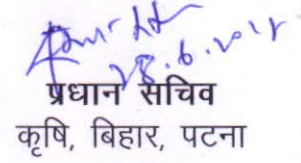 28.6.2018
प्रधान सचिव
कृषि, बिहार, पटना